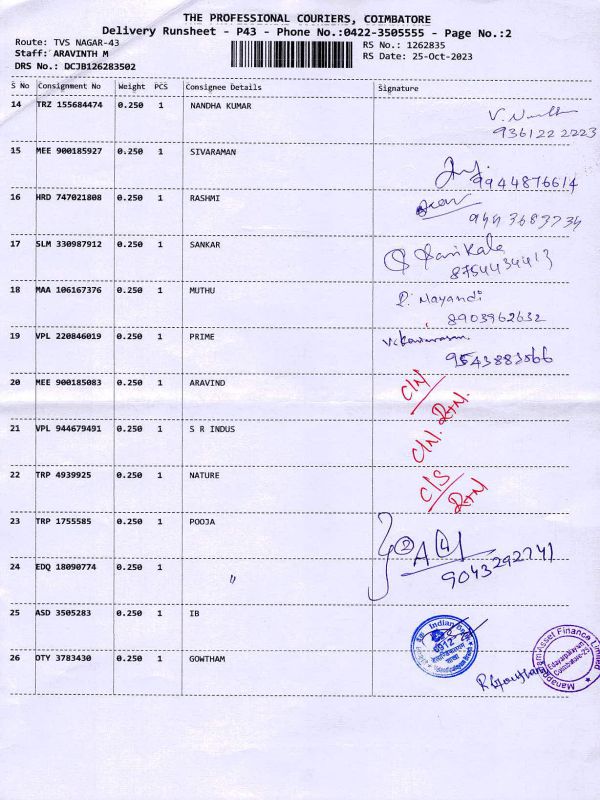 THE PROFESSIONAL COURIERS, COIMBATORE
Delivery Runsheet - P43 - Phone No.:0422-3505555 - Page No.:2
Route: TVS NAGAR-43
Staff: ARAVINTH M
DRS No.: DCJB126283502
RS No.: 1262835
RS Date: 25-Oct-2023
S No Consignment No Weight PCS Consignee Details Signature
14 TRZ 155684474 0.250 1 NANDHA KUMAR
9361222223
15 MEE 900185927 0.250 1 SIVARAMAN
9944876614
16 HRD 747021808 0.250 1 RASHMI
9443683734
17 SLM 330987912 0.250 1 SANKAR
Sasikala
8754434413
18 MAA 106167376 0.250 1 MUTHU
P. Mayandi
8903962632
19 VPL 220846019 0.250 1 PRIME
9543883566
20 MEE 900185083 0.250 1 ARAVIND
C/N
RTN.
21 VPL 944679491 0.250 1 S R INDUS
C/N.
22 TRP 4939925 0.250 1 NATURE
C/S
RTN
23 TRP 1755585 0.250 1 POOJA
2
9043292741
24 EDQ 18090774 0.250 1 "
25 ASD 3505283 0.250 1 IB
Indian Bank
26 OTY 3783430 0.250 1 GOWTHAM
Manappuram Asset Finance Limited
Edayarpalayam
Coimbatore-25